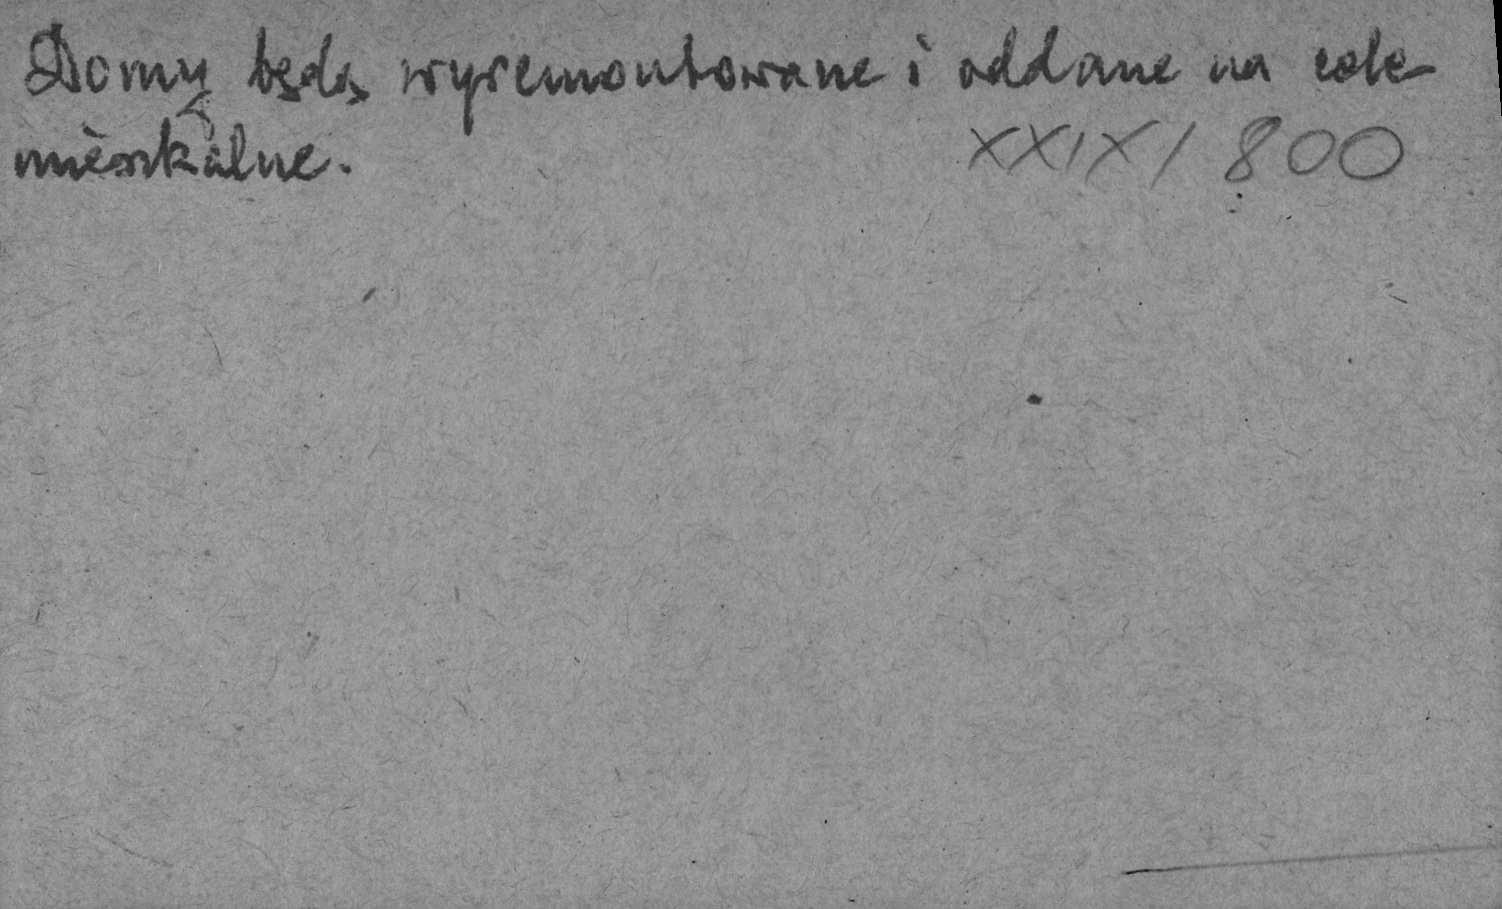 Domy będą wyremontowane i oddane na cele
mieszkalne.
XXIX/800